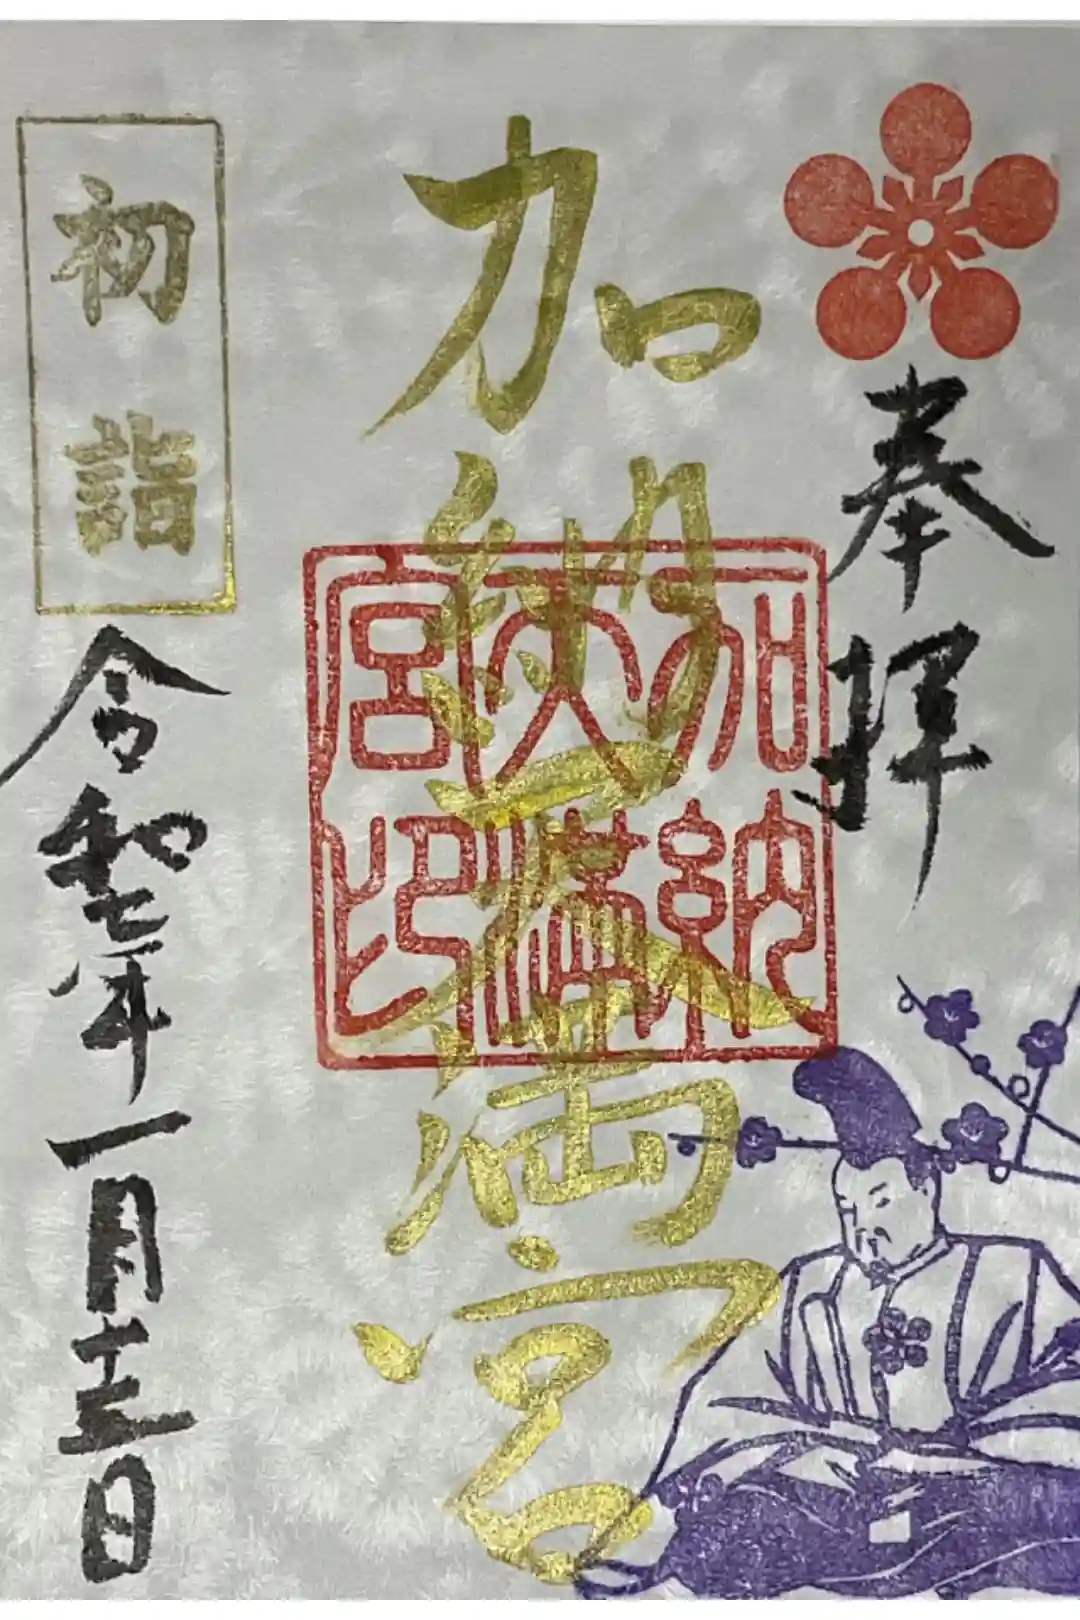 奉拝
加納天満宮
加納
天満
宮印
初詣
令和七年一月